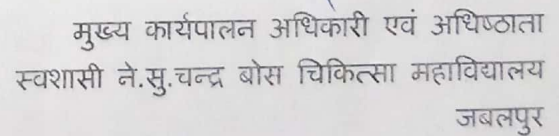 मुख्य कार्यपालन अधिकारी एवं अधिष्ठाता
स्वशासी ने.सु.चन्द्र बोस चिकित्सा महाविद्यालय
जबलपुर